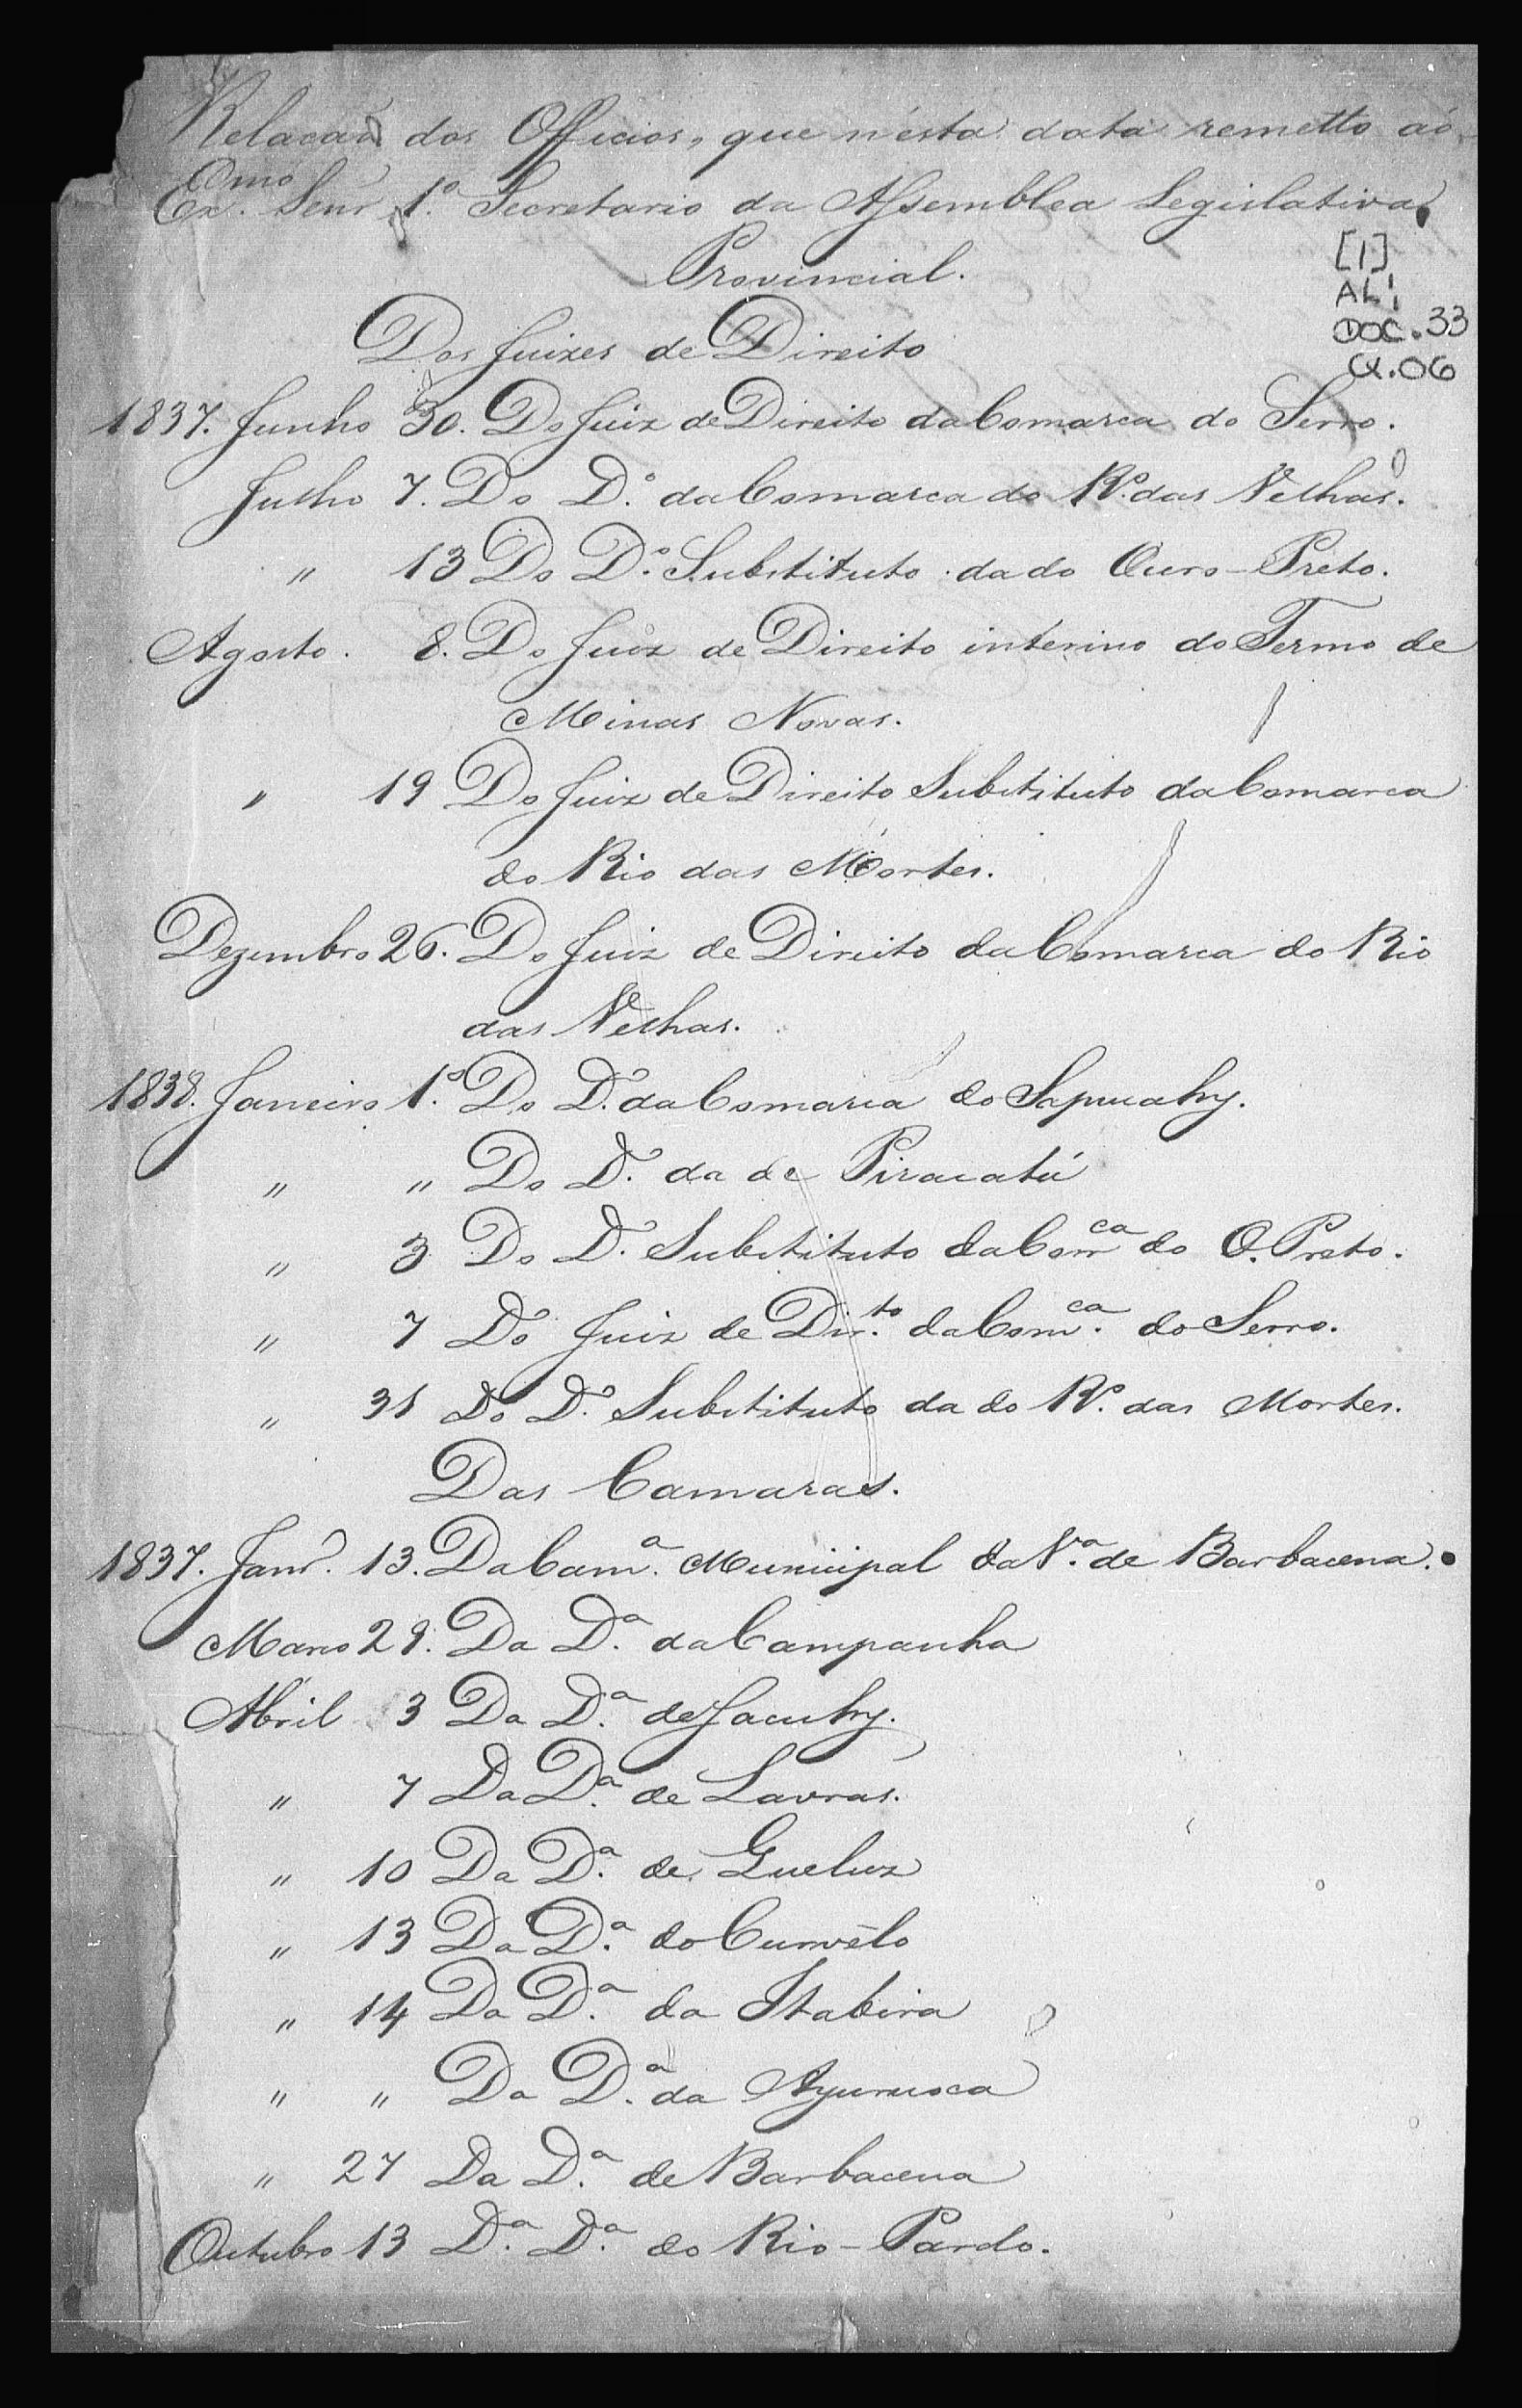 Relacaõ dos Officios, que nésta data remetto aó
Exmo. Senr 1.º Secretario da Assemblea Legislativa
Provincial.
[1]
AL¹/₁
DOC. 33
CX. 06
Dos Juizes de Direito
1837. Junho 30. Do Juiz de Direito da Comarca do Serro.
Julho 7. Do D.º da Comarca do R.º das Velhas.
" 13 Do D.º Substituto da do Ouro-Preto.
Agosto. 8. Do Juiz de Direito interino do Termo de
Minas Novas.
" 19 Do Juiz de Direito Substituto da Comarca
do Rio das Mortes.
Dezembro 26. Do Juiz de Direito da Comarca do Rio
das Velhas.
1838. Janeiro 1.º Do D.º da Comarca do Sapucahy.
" " Do D.º da de Piracatú
" 3 Do D.º Substituto da Comca do O. Preto.
" 7 Do Juiz de Dir.to da Com.ca do Serro.
" 31 Do D.º Substituto da do R.º das Mortes.
Das Camaras.
1837. Janr.º 13. Da Cam.a Municipal da V.a de Barbacena.
Marco 29. Da D.a da Campanha
Abril 3 Da D.a de Jacuhy.
" 7 Da D.a de Lavras.
" 10 Da D.a de Gueluz
" 13 Da D.a do Curvêlo
" 14 Da D.a da Itabira
" " Da D.a da Ayuruoca
" 27 Da D.a de Barbacena
Outubro 13 D.a D.a do Rio-Pardo.